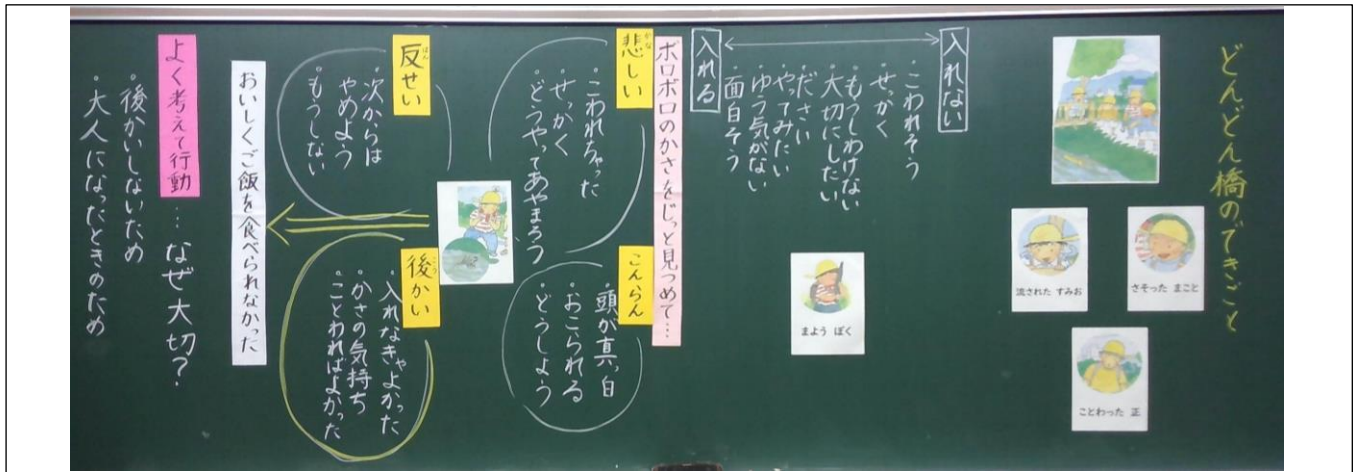 どんどん橋のできごと
さそった まこと
流された すみお
ことわった 正
入れない
・こわれそう
・せっかく
・もうしわけない
・大切にしたい
・ださい
・やってみたい
・ゆう気がない
・面白そう
入れる
まよう ぼく
ボロボロのかさをじっと見つめて…
悲しい
かな
・こわれちゃった
・せっかく
・どうやってあやまろう
こんらん
・頭が真っ白
・おこられる
・どうしよう
反せい
はん
・次からは
やめよう
・もうしない
後かい
こう
・入れなきゃよかった
・かさの気持ち
・ことわればよかった
おいしくご飯を食べられなかった
よく考えて行動…なぜ大切?
・後かいしないため
・大人になったときのため